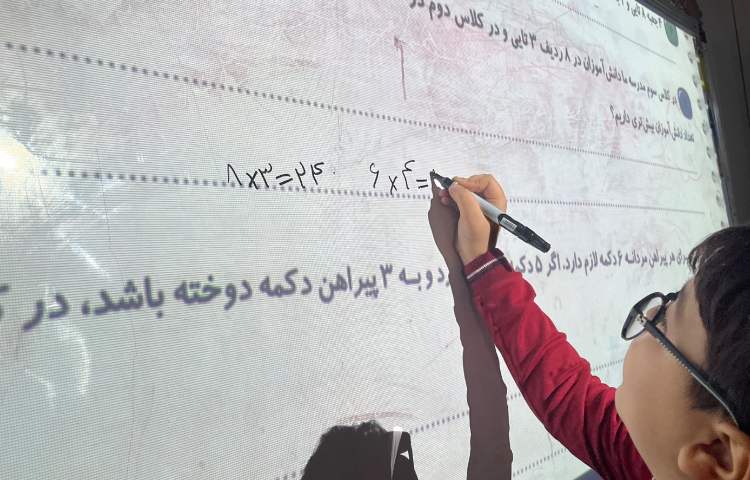 در کلاس سوم مدرسه ما دانش آموزان در ۸ ردیف ۳ تایی و در کلاس دوم در
تعداد دانش آموزان بیش‌تری داریم؟
۸×۳=۲۴ ۶×۴=
هر پیراهن مردانه ۶ دکمه لازم دارد. اگر ۵ دکمه
و به ۳ پیراهن دکمه دوخته باشد، در